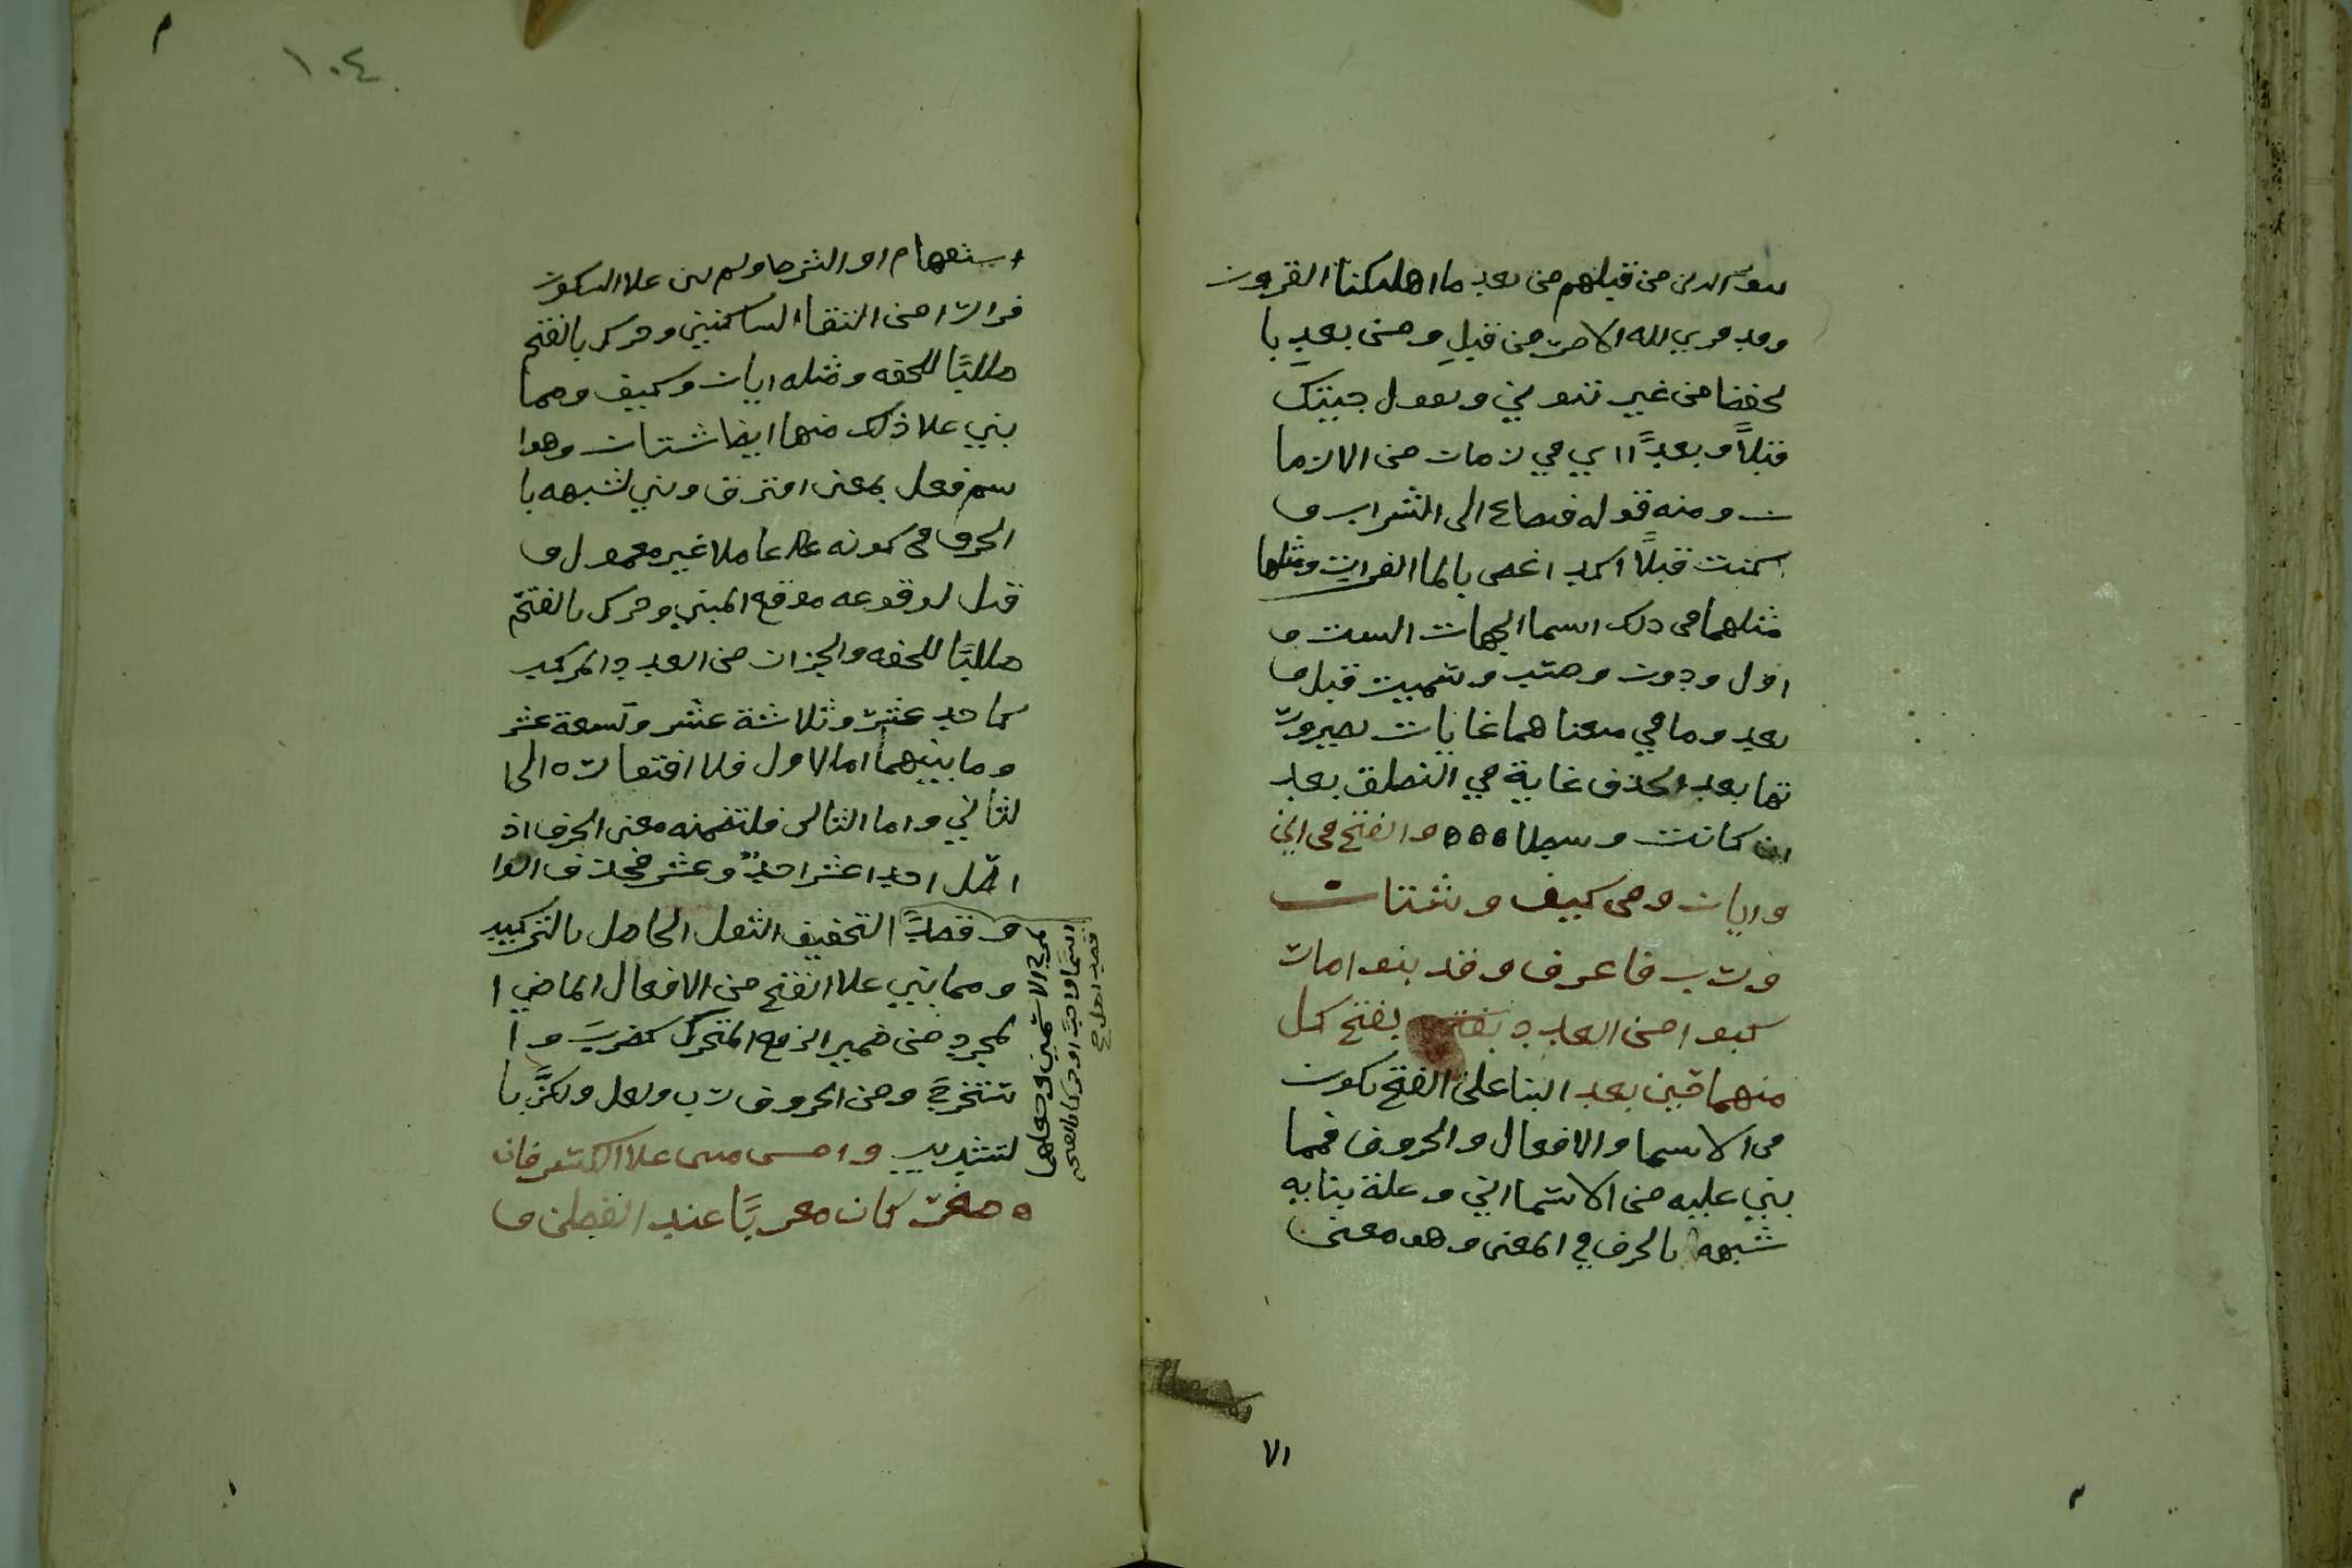 من قبلهم من بعد ما اهلكنا القرون
وقد قري لله الامر من قبلِ ومن بعدِ با
لخفضا من غير تنوين ويقول جيتك
قبلاً وبعدًا اي في زمان من الازما
ن ومنه قوله فساغ الى الشراب و
كنت قبلاً اكد اغص بالما الفرات ومثلها
مثلهما في ذلك اسما الجهات الست و
اول ودون وسميت قبل و
بعد وما في معناهما غايات لصيرور
تها بعد الحذف غاية في النطق بعد
ان كانت وسطا ه ه ه والفتح في اين
وايان وفي كيف وشتان
ورب فاعرف وقد بنوا مات
كبوا من العدد بفتح بفتح كل
منهما حين يعد البنا على الفتح يكون
في الاسما والافعال والحروف فمما
بني عليه من الاسما اين وعلة بنايه
شبهه بالحرف في المعنى وهو معنى
الا
١٠٤
استفهام او الشرط ولم يبن علا السكون
فرارا من التقا الساكنين وحرك بالفتح
طلبًا للخفه ومثله ايان وكيف ومما
بني علا ذلك منها ايضا شتان وهوا
سم فعل بمعنى افترق وبني لشبهه با
الحرف في كونه عاملا غير معمول و
قيل لوقوعه موقع المبني وحرك بالفتح
طلبًا للخفه والجزان من العدد المركب
كاحد عشر وثلاثة عشر وتسعة عشر
وما بينهما اما الاول فلا افتقاره الى ا
لثاني واما الثاني فلتضمنه معنى الحرف اذ
اصل احد اعشر احدٌ وعشر فحذف الوا
و قصدًا التخفيف الثقل الحاصل بالتركيب
ومما بني علا الفتح من الافعال الماضي ا
لمجرد من ضمير الرفع المتحرك كضربَ وا
ستخرجَ ومن الحروف رب ولعل ولكنَّ با
لتشديد وامس مبني علا الكسر فان
ه صغر كان معربًا عند الفطن و
مزج الاسمين وجعلهما
اسما واحدًا وحركا بالفتحه